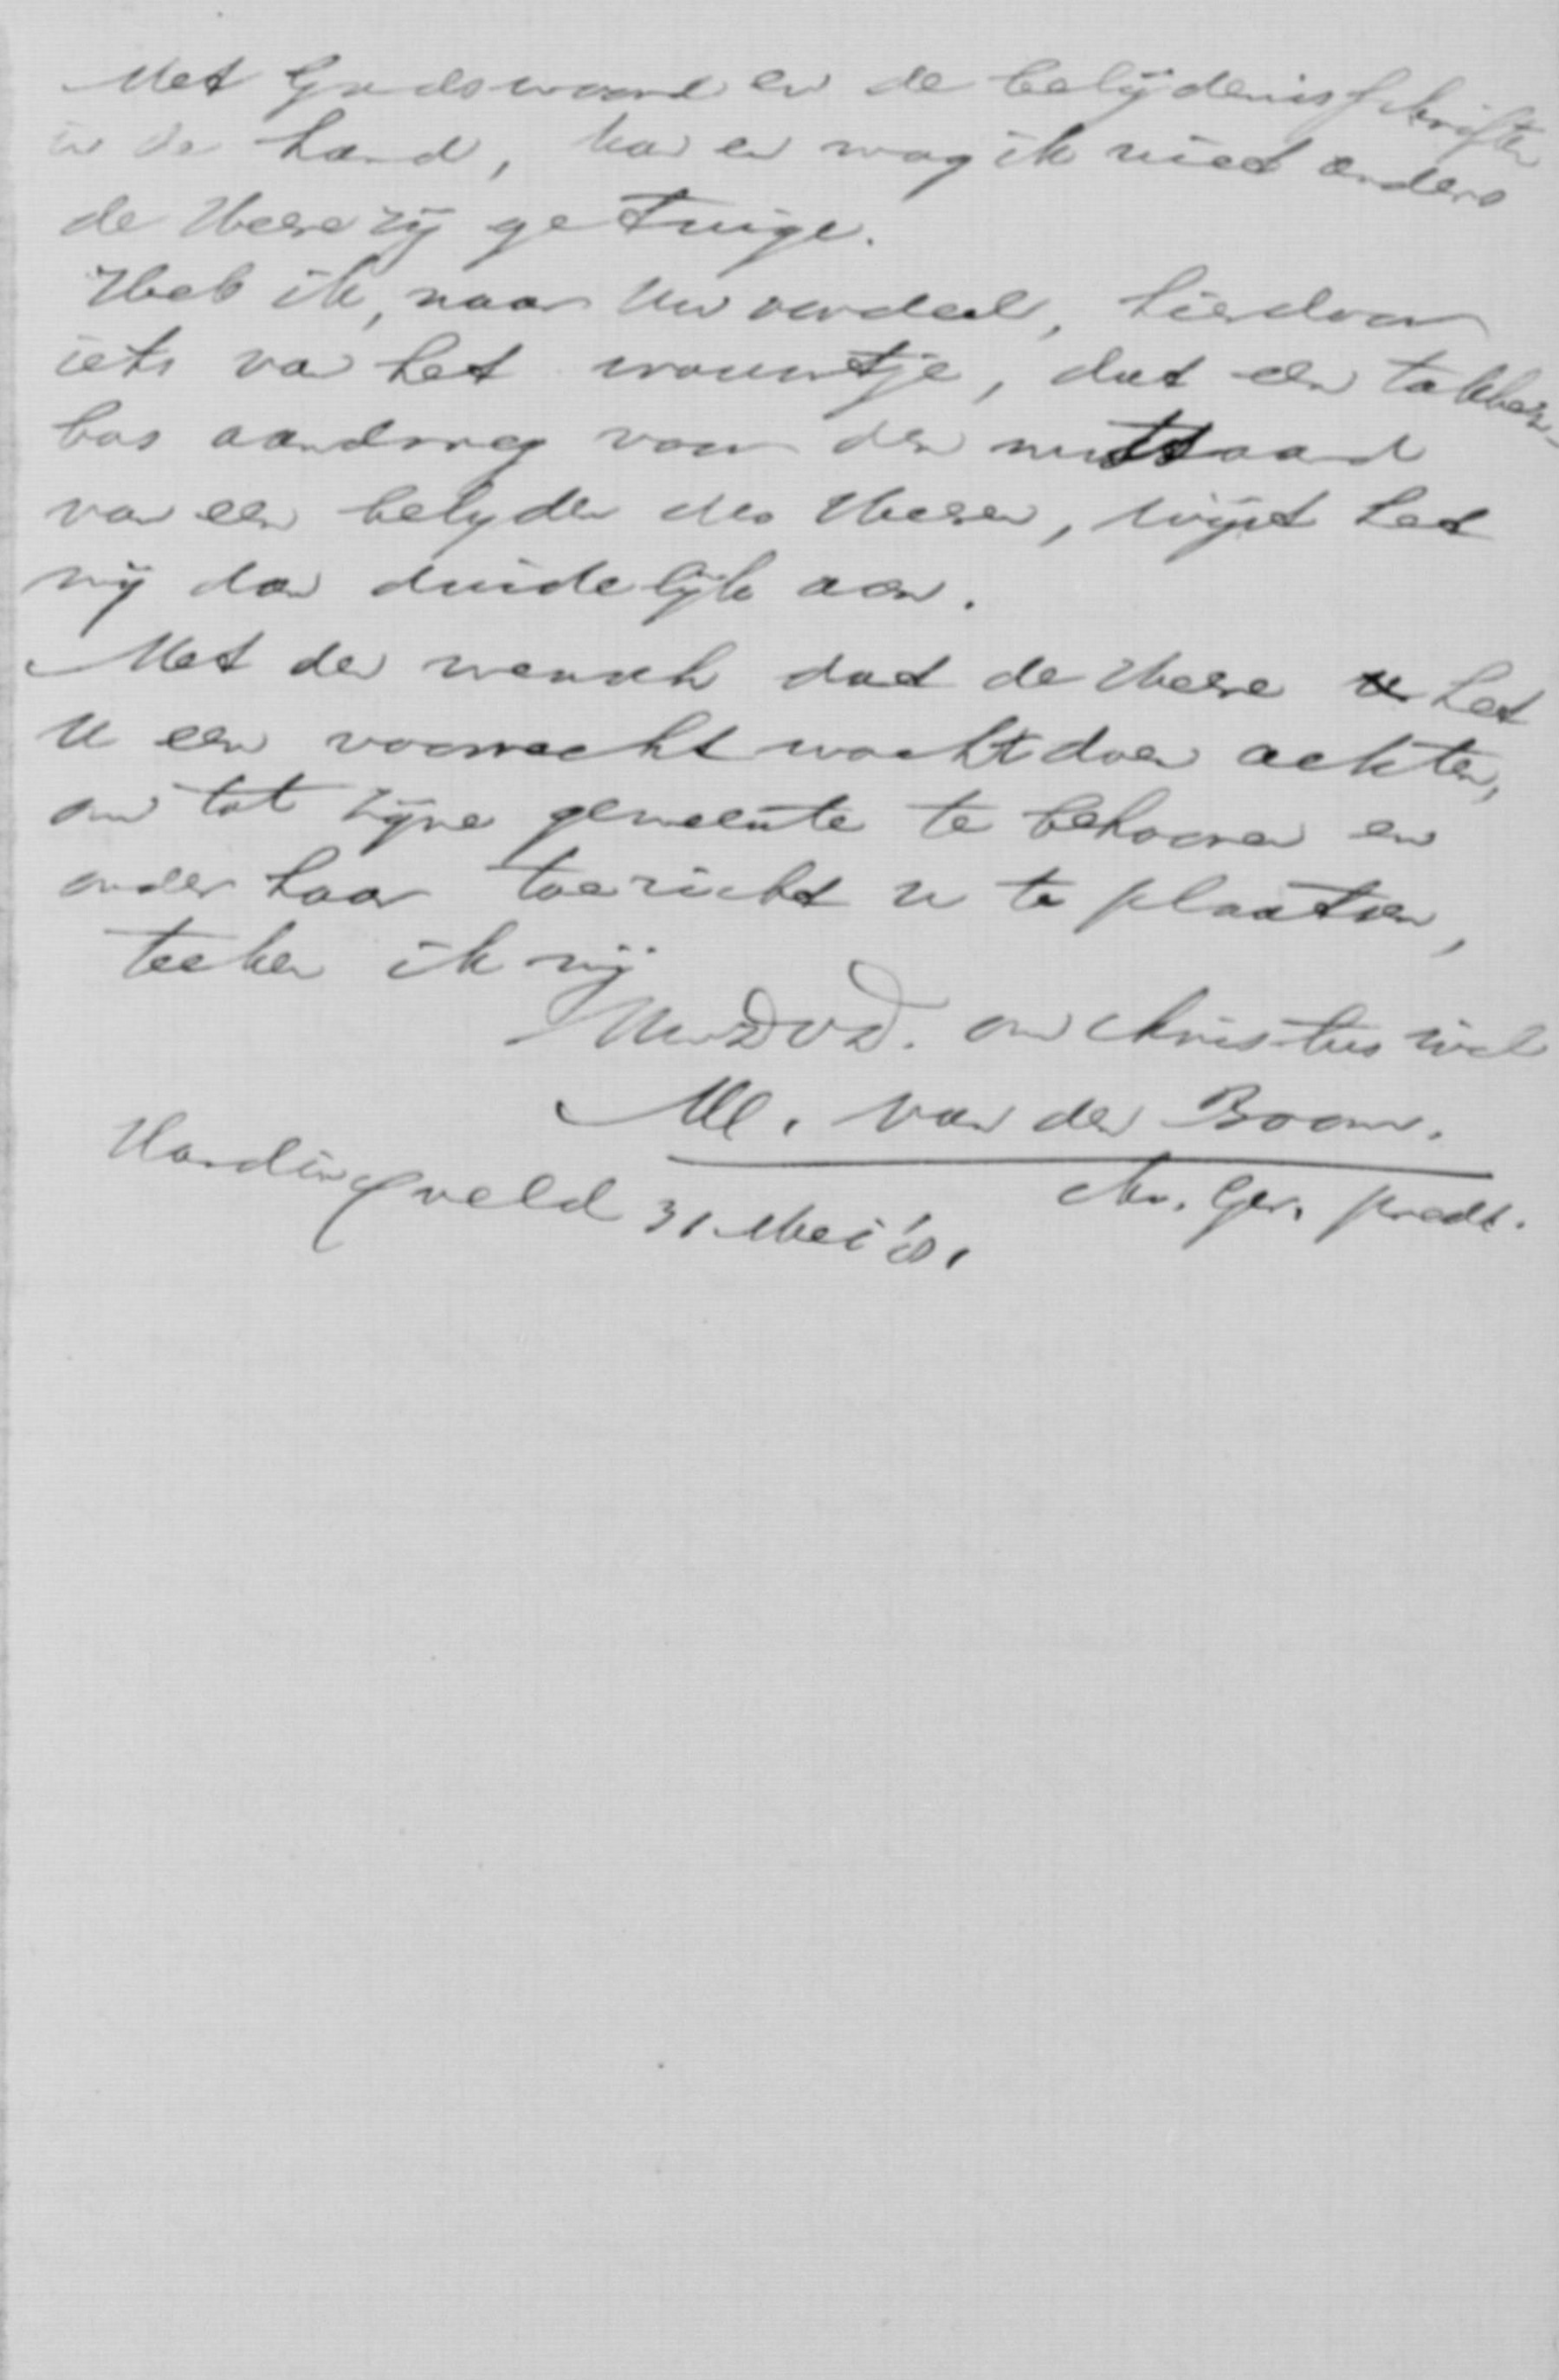 Met Gods woord en de belijdenisschriften
in de hand, kan en mag ik niet anders
de Heere zij getuige.
Heb ik, naar Uw oordeel, hierdoor
iets van het vrouwtje, dat een takken-
bos aandroeg voor den mutsaard
van een belyder des Heeren, wijst het
mij dan duidelijk aan.
Met den wensch dat de Heere het
U een voorrecht mocht doen achten,
om tot zijne gemeente te behooren en
onder haar toezicht U te plaatsen,
teeken ik mij
Uw D v D. om Christus wil
M. van der Boom.
Chr. Ger. predt.
Hardingsveld 31 Mei '81